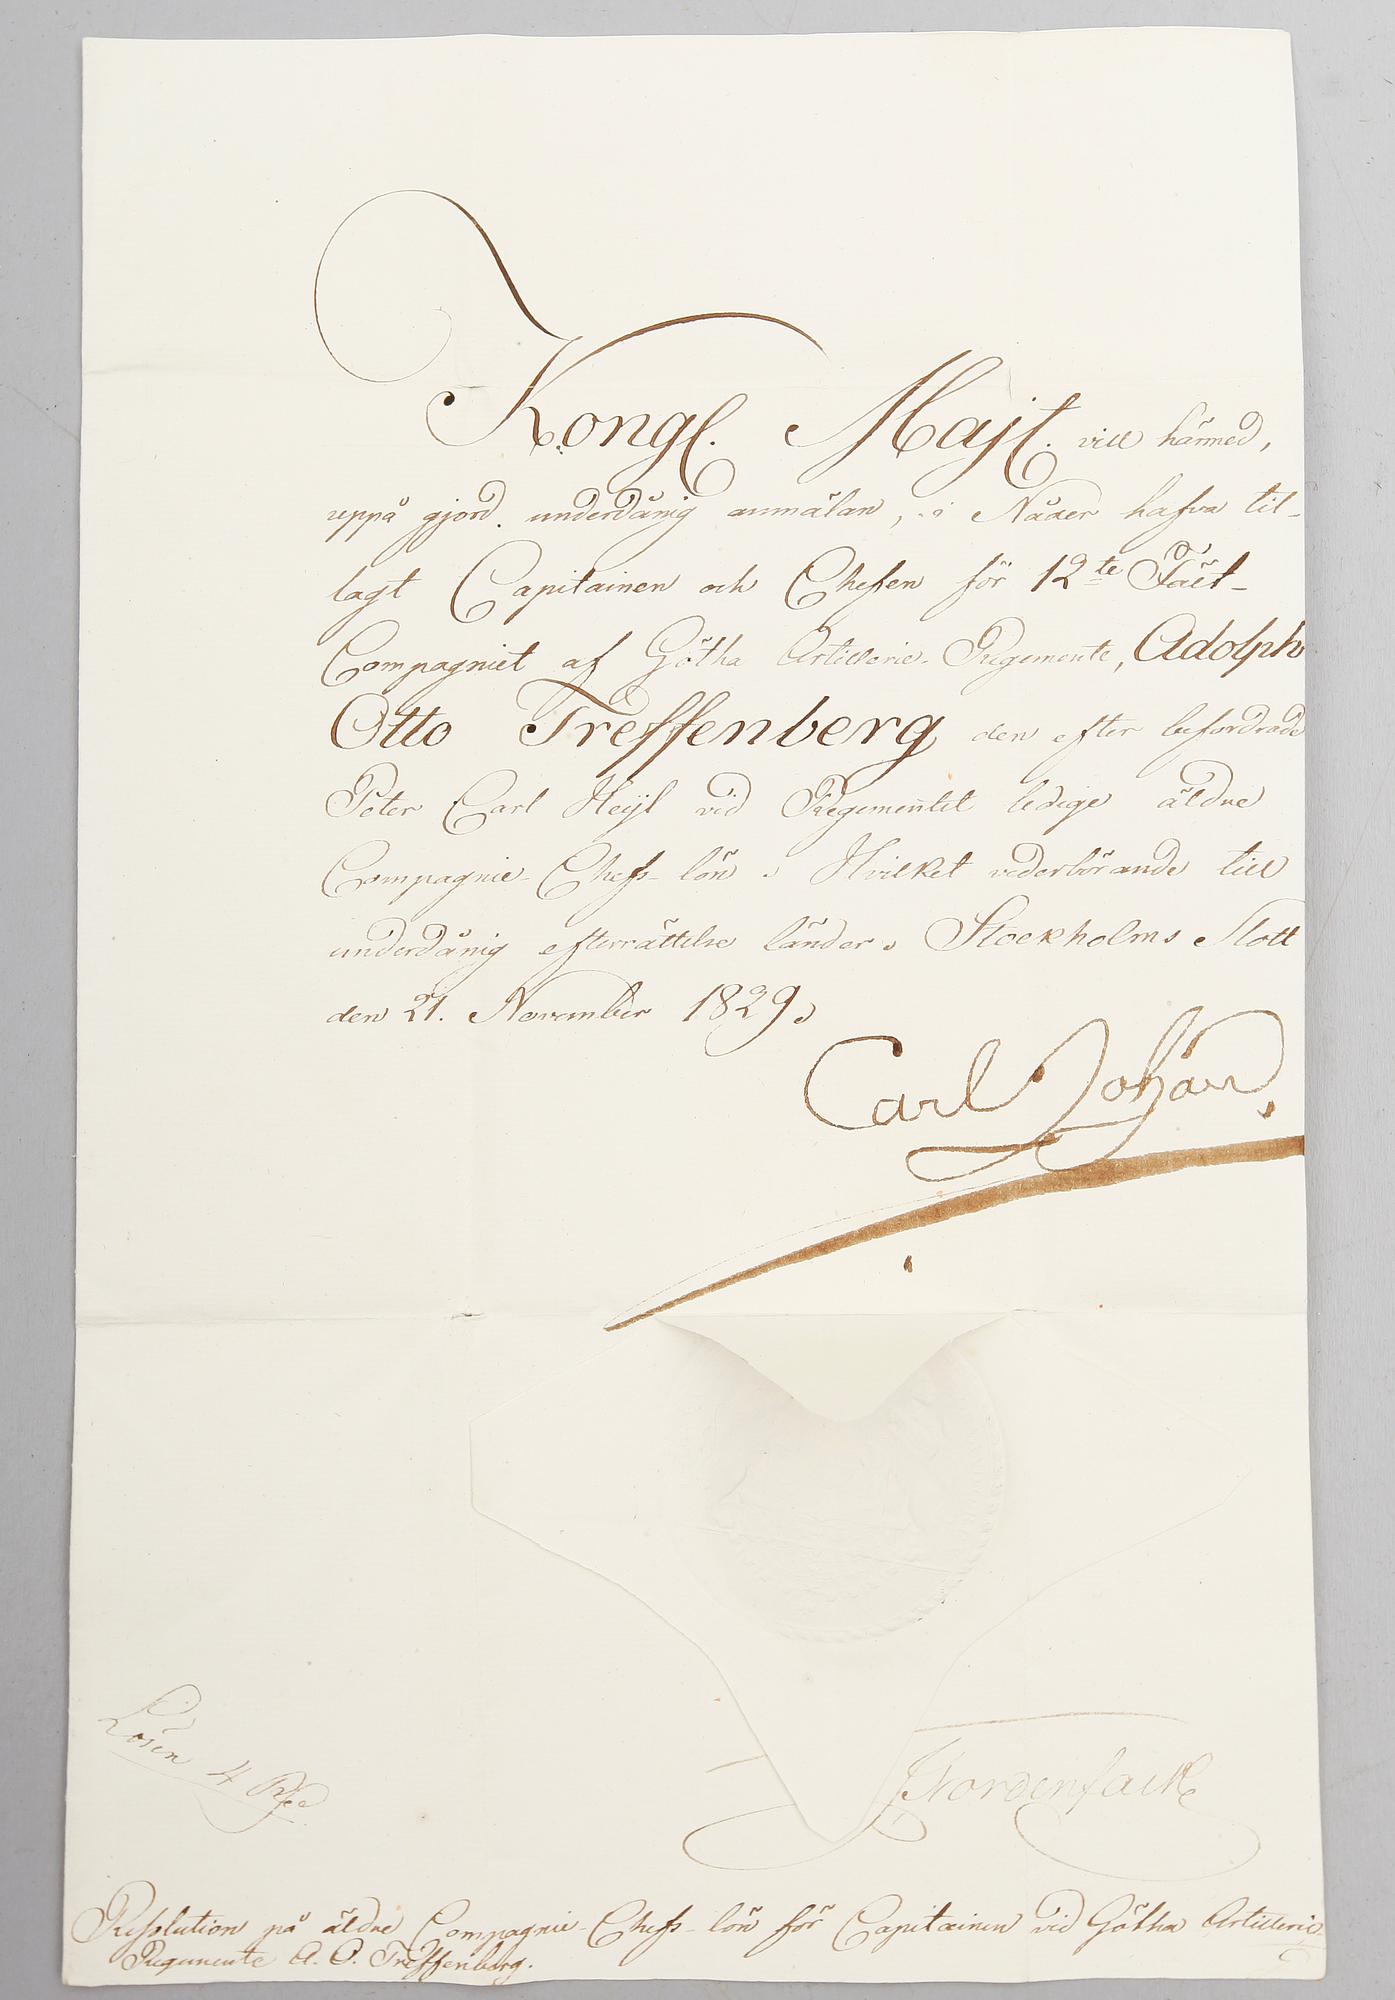 Kongl. Majt. vill härmed,
uppå gjord underdånig anmälan, i Nåder hafva til-
lagt Capitainen och Chefen för 12te Fält-
Compagniet af Götha Artillerie-Regemente, Adolph
Otto Treffenberg den efter befordrade
Peter Carl Heijl vid Regementet ledige äldre
Compagnie-Chefs-lön. Hvilket vederbörande till
underdånig efterrättelse länder. Stockholms Slott
den 21. November 1829.
Carl Johan
Lösen 4
Nordenfalk
Resolution på äldre Compagnie-Chefs-lön för Capitainen vid Götha Artillerie-
Regemente A. O. Treffenberg.